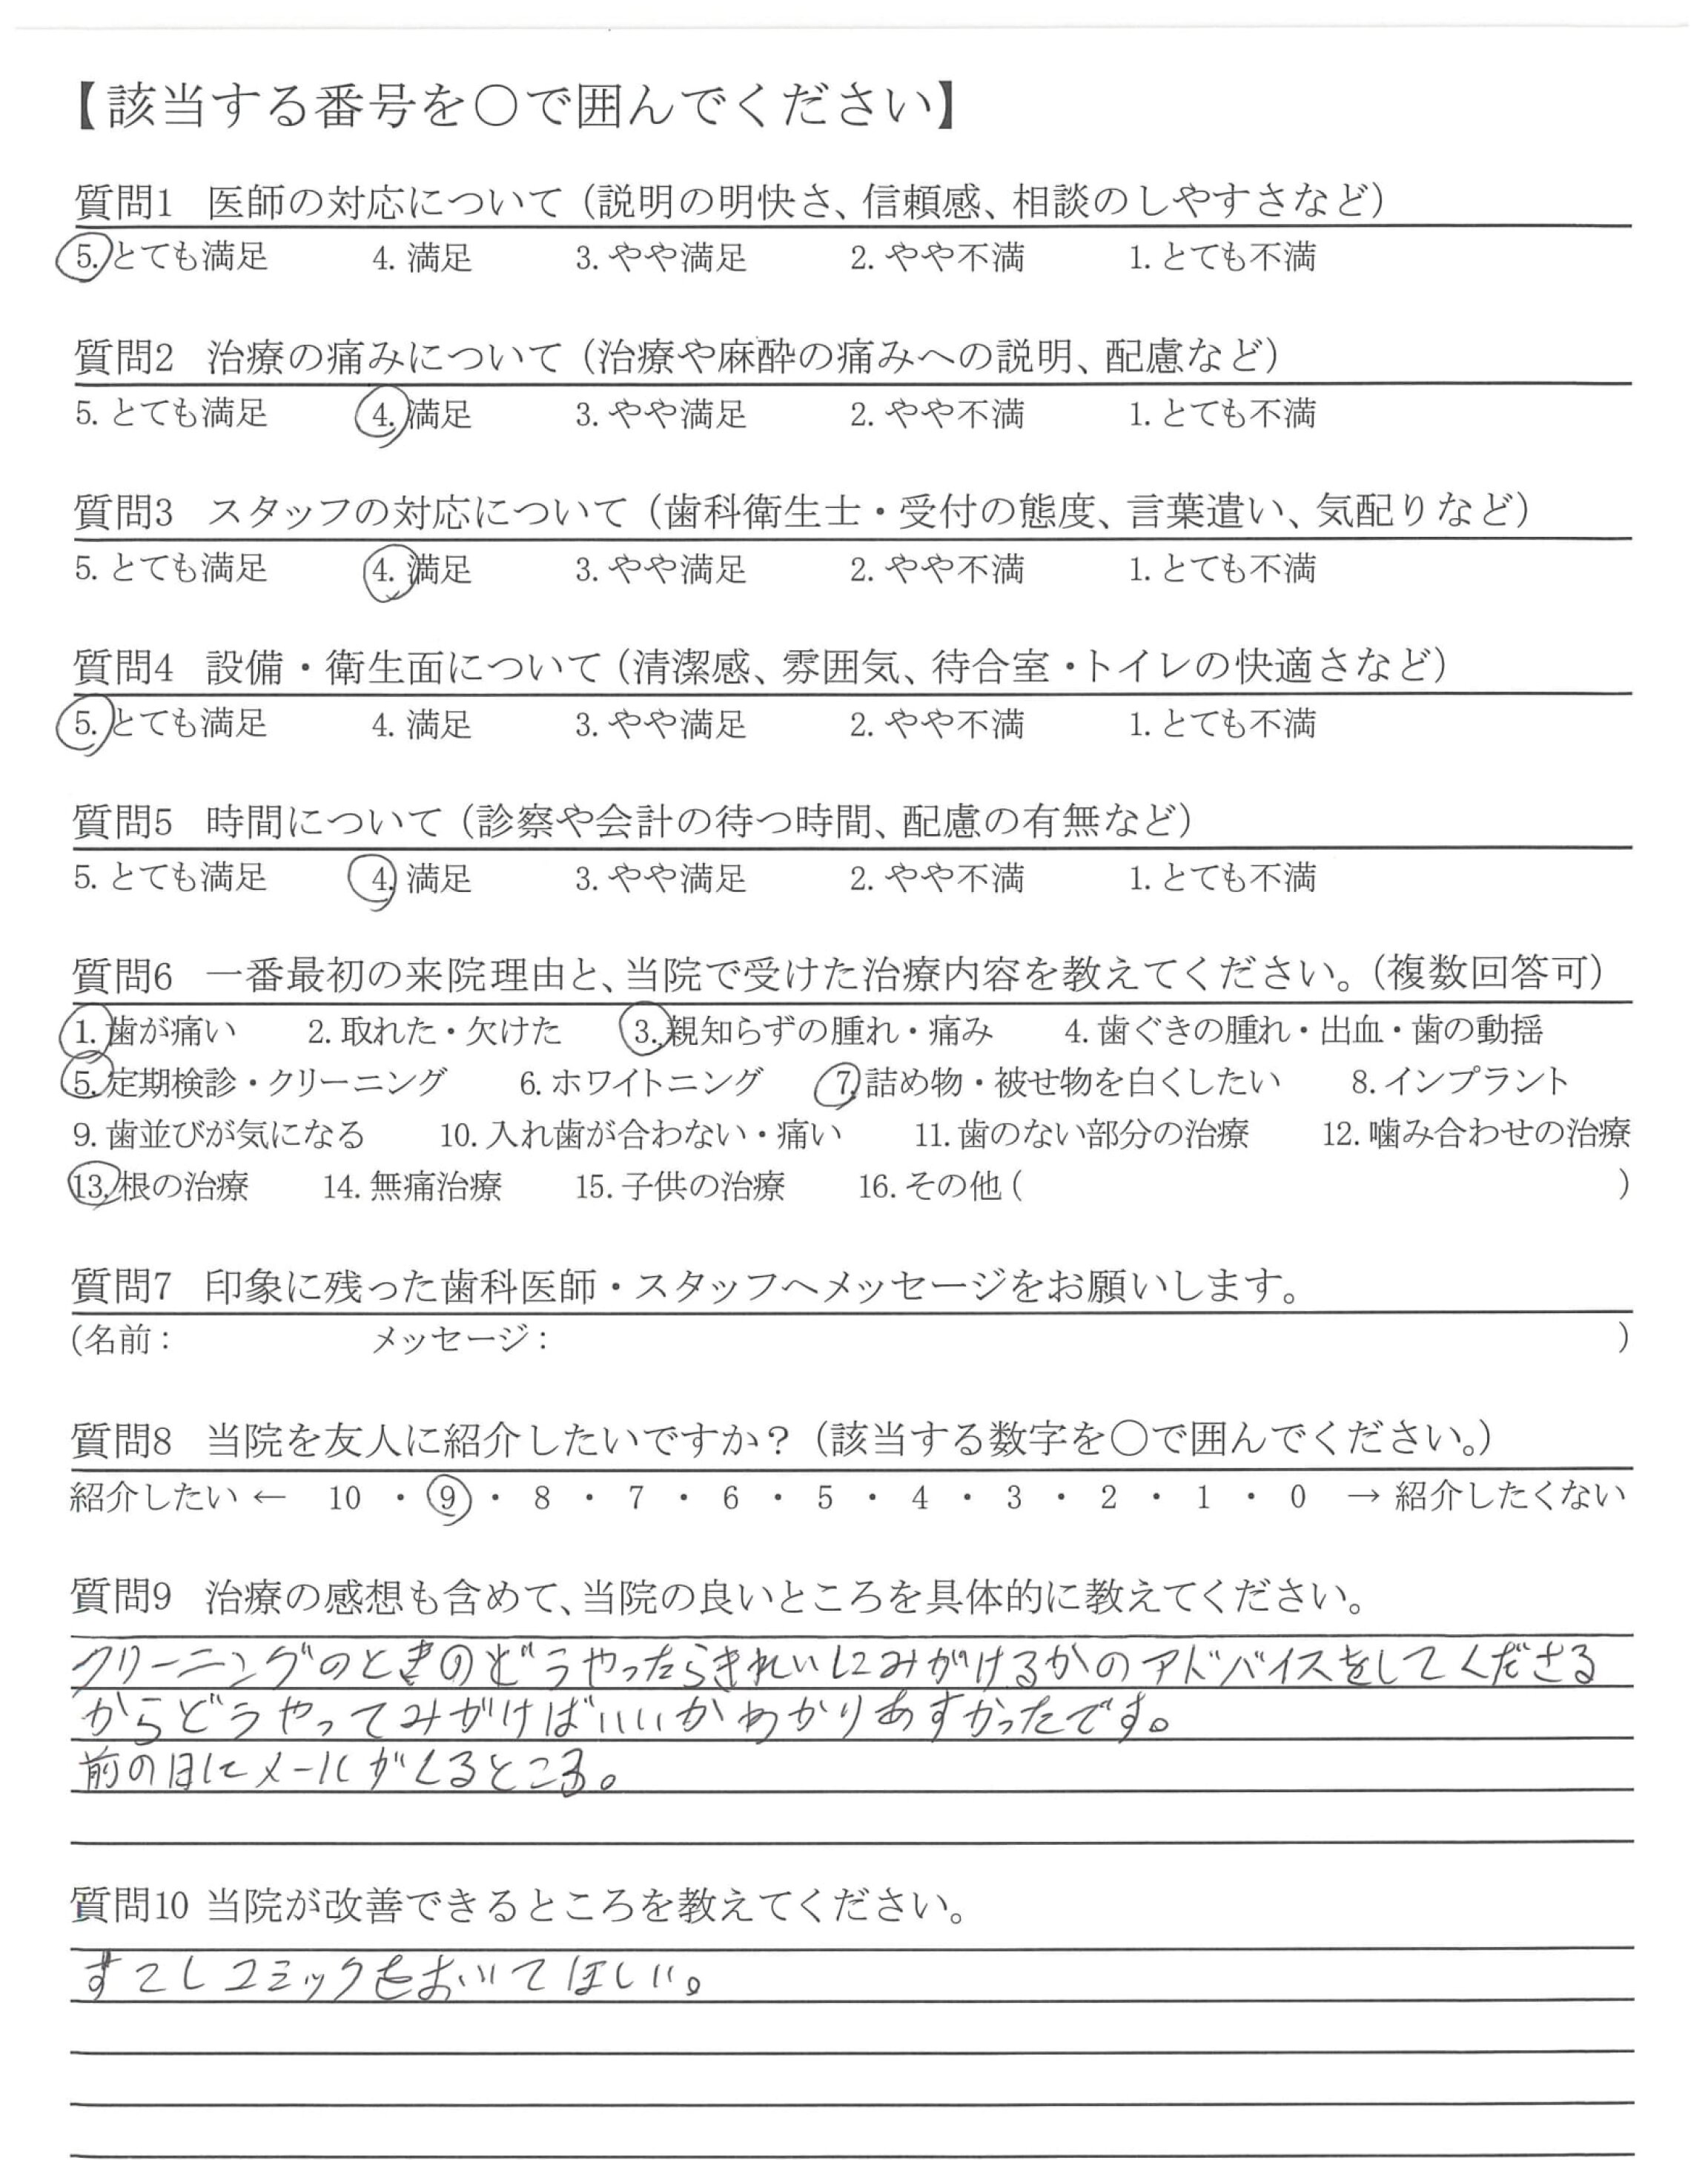 【該当する番号を○で囲んでください】
質問1 医師の対応について（説明の明快さ、信頼感、相談のしやすさなど）
5. とても満足 4. 満足 3. やや満足 2. やや不満 1. とても不満
質問2 治療の痛みについて（治療や麻酔の痛みへの説明、配慮など）
5. とても満足 4. 満足 3. やや満足 2. やや不満 1. とても不満
質問3 スタッフの対応について（歯科衛生士・受付の態度、言葉遣い、気配りなど）
5. とても満足 4. 満足 3. やや満足 2. やや不満 1. とても不満
質問4 設備・衛生面について（清潔感、雰囲気、待合室・トイレの快適さなど）
5. とても満足 4. 満足 3. やや満足 2. やや不満 1. とても不満
質問5 時間について（診察や会計の待つ時間、配慮の有無など）
5. とても満足 4. 満足 3. やや満足 2. やや不満 1. とても不満
質問6 一番最初の来院理由と、当院で受けた治療内容を教えてください。（複数回答可）
1. 歯が痛い 2. 取れた・欠けた 3. 親知らずの腫れ・痛み 4. 歯ぐきの腫れ・出血・歯の動揺
5. 定期検診・クリーニング 6. ホワイトニング 7. 詰め物・被せ物を白くしたい 8. インプラント
9. 歯並びが気になる 10. 入れ歯が合わない・痛い 11. 歯のない部分の治療 12. 噛み合わせの治療
13. 根の治療 14. 無痛治療 15. 子供の治療 16. その他（ ）
質問7 印象に残った歯科医師・スタッフへメッセージをお願いします。
（名前： メッセージ： ）
質問8 当院を友人に紹介したいですか？（該当する数字を○で囲んでください。）
紹介したい ← 10 ・ 9 ・ 8 ・ 7 ・ 6 ・ 5 ・ 4 ・ 3 ・ 2 ・ 1 ・ 0 → 紹介したくない
質問9 治療の感想も含めて、当院の良いところを具体的に教えてください。
クリーニングのときのどうやったらきれいにみがけるかのアドバイスをしてくださる
からどうやってみがけばいいかわかりあすかったです。
前の日にメールがくるところ。
質問10 当院が改善できるところを教えてください。
すこしコミックをおいてほしい。